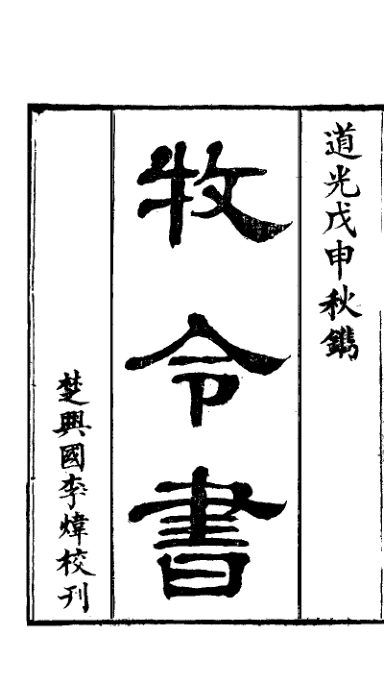 道光戊申秋鐫
牧令書
楚興國李煒校刊